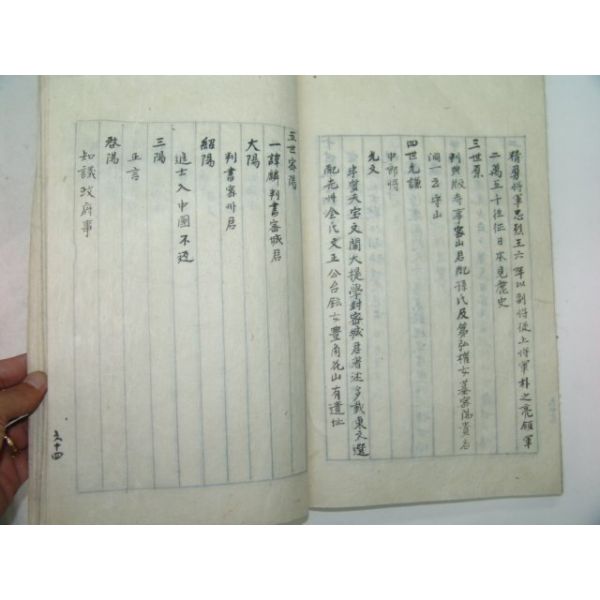 精勇將軍忠烈王六年以副將從上將軍朴之亮領軍
二萬五千往征日本見麗史
三世
判典版寺事密山君配孫氏及第弘權女墓密陽貴
洞一云守山
四世允謙
中郎將
允文
文閣大提學封密城君著述多載東文選
配花州金氏文正公台鉉女豊角花山有遺址
五世密陽
一諱麟判書密城君
大陽
判書密州君
紹陽
進士入中國不返
三陽
正言
啓陽
知議政府事
五十四